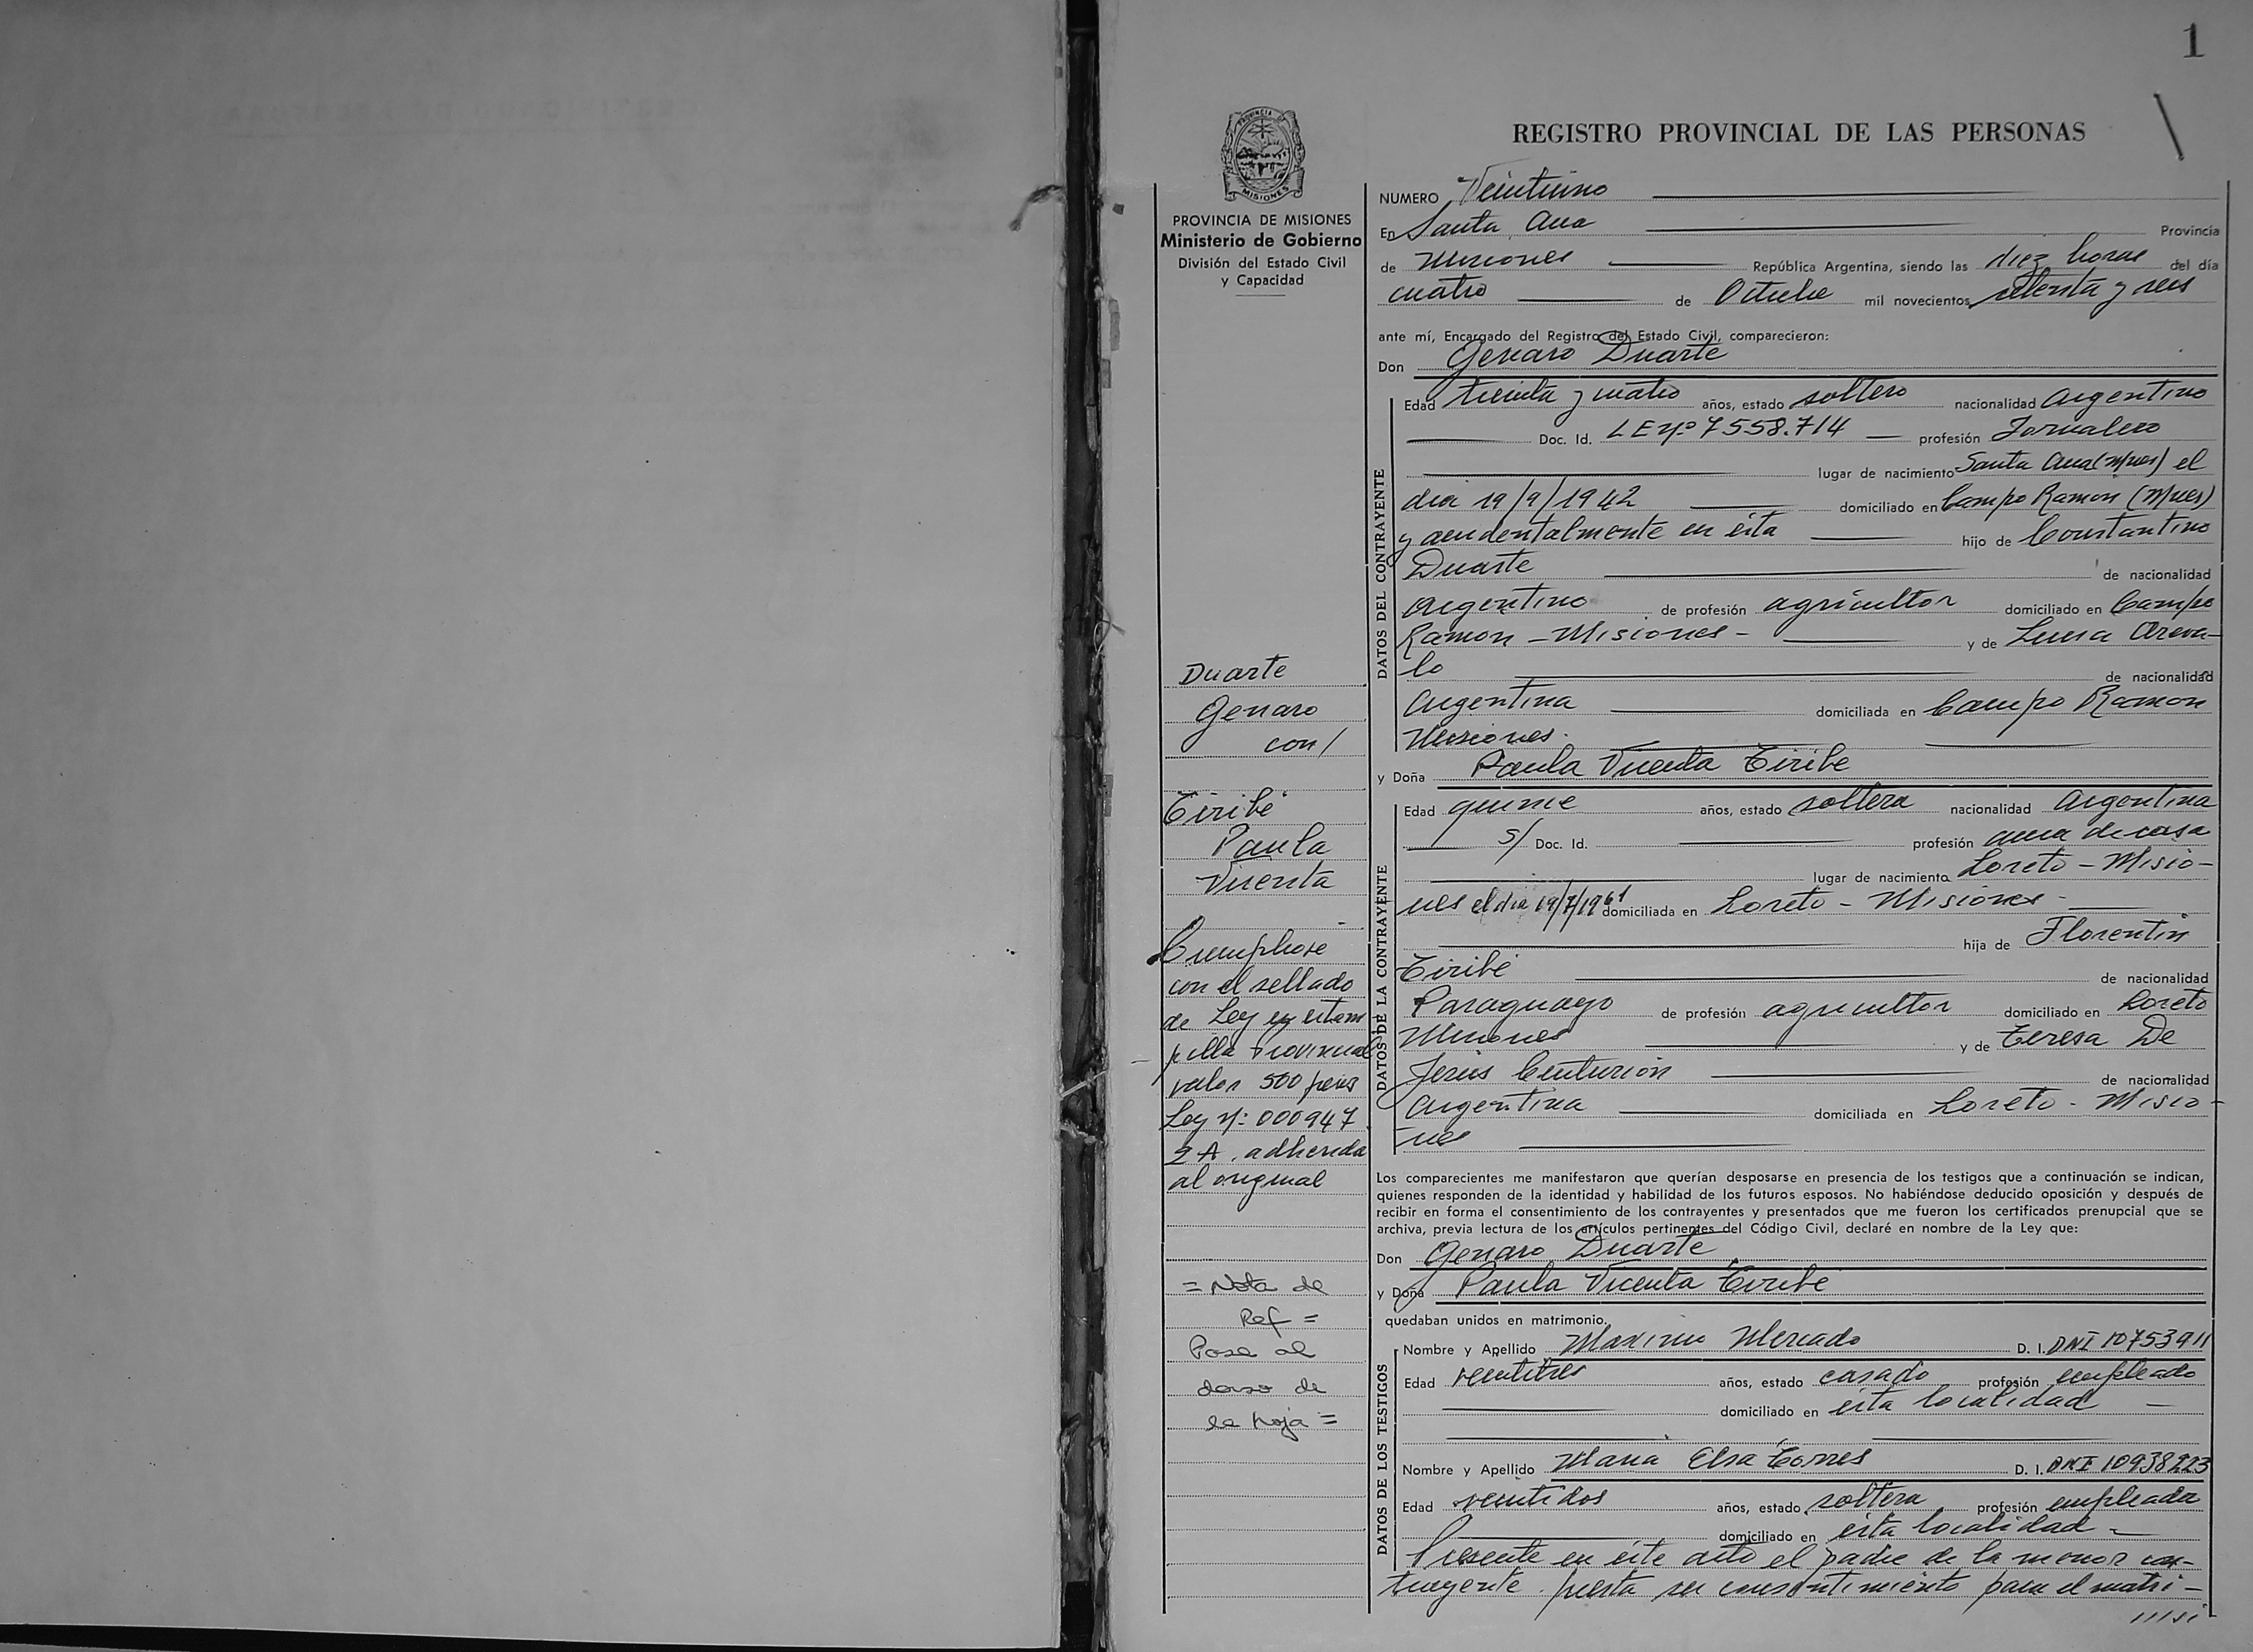 1
PROVINCIA DE
MISIONES
PROVINCIA DE MISIONES
Ministerio de Gobierno
División del Estado Civil
y Capacidad
Duarte
Genaro
con/
Tiribé
Paula
Vicenta
Cumplose
con el sellado
de Ley en estam
pilla provincial
valor 500 pesos
Ley Nº 000947
2 A. adherida
al original
= Nota de
Ref =
Pasa al
dorso de
la hoja =
REGISTRO PROVINCIAL DE LAS PERSONAS
NUMERO Veintiuno
En Santa Ana Provincia
de Misiones República Argentina, siendo las diez horas del día
cuatro de Octubre mil novecientos setenta y seis
ante mí, Encargado del Registro del Estado Civil, comparecieron:
Don Genaro Duarte
DATOS DEL CONTRAYENTE
Edad treinta y cuatro años, estado soltero nacionalidad Argentino
Doc. Id. LE Nº 7558.714 — profesión Jornalero
lugar de nacimiento Santa Ana (Mnes) el
dia 19/9/1942 domiciliado en Campo Ramon (Mnes)
y accidentalmente en ésta hijo de Constantino
Duarte de nacionalidad
Argentino de profesión agricultor domiciliado en Campo
Ramon – Misiones – y de Luisa Areva-
lo de nacionalidad
Argentina domiciliada en Campo Ramon
Misiones.
y Doña Paula Vicenta Tiribe
DATOS DE LA CONTRAYENTE
Edad quince años, estado soltera nacionalidad Argentina
s/ Doc. Id. profesión ama de casa
lugar de nacimiento Loreto – Misio-
nes el dia 19/7/1961 domiciliada en Loreto – Misiones -
hija de Florentin
Tiribé de nacionalidad
Paraguayo de profesión agricultor domiciliado en Loreto
Misiones y de Teresa De
Jesús Centurión de nacionalidad
Argentina domiciliada en Loreto - Misio-
nes
Los comparecientes me manifestaron que querían desposarse en presencia de los testigos que a continuación se indican,
quienes responden de la identidad y habilidad de los futuros esposos. No habiéndose deducido oposición y después de
recibir en forma el consentimiento de los contrayentes y presentados que me fueron los certificados prenupcial que se
archiva, previa lectura de los artículos pertinentes del Código Civil, declaré en nombre de la Ley que:
Don Genaro Duarte
y Doña Paula Vicenta Tiribé
quedaban unidos en matrimonio.
DATOS DE LOS TESTIGOS
Nombre y Apellido Mercado D. I. DNI 10753911
Edad veintitres años, estado casado profesión empleado
domiciliado en ésta localidad —
Nombre y Apellido Maria Elsa Torres D. I. DNI 10938223
Edad veintidos años, estado soltera profesión empleada
domiciliado en ésta localidad –
Presente en éste acto el padre de la menor con-
trayente presta su consentimiento para el matri-